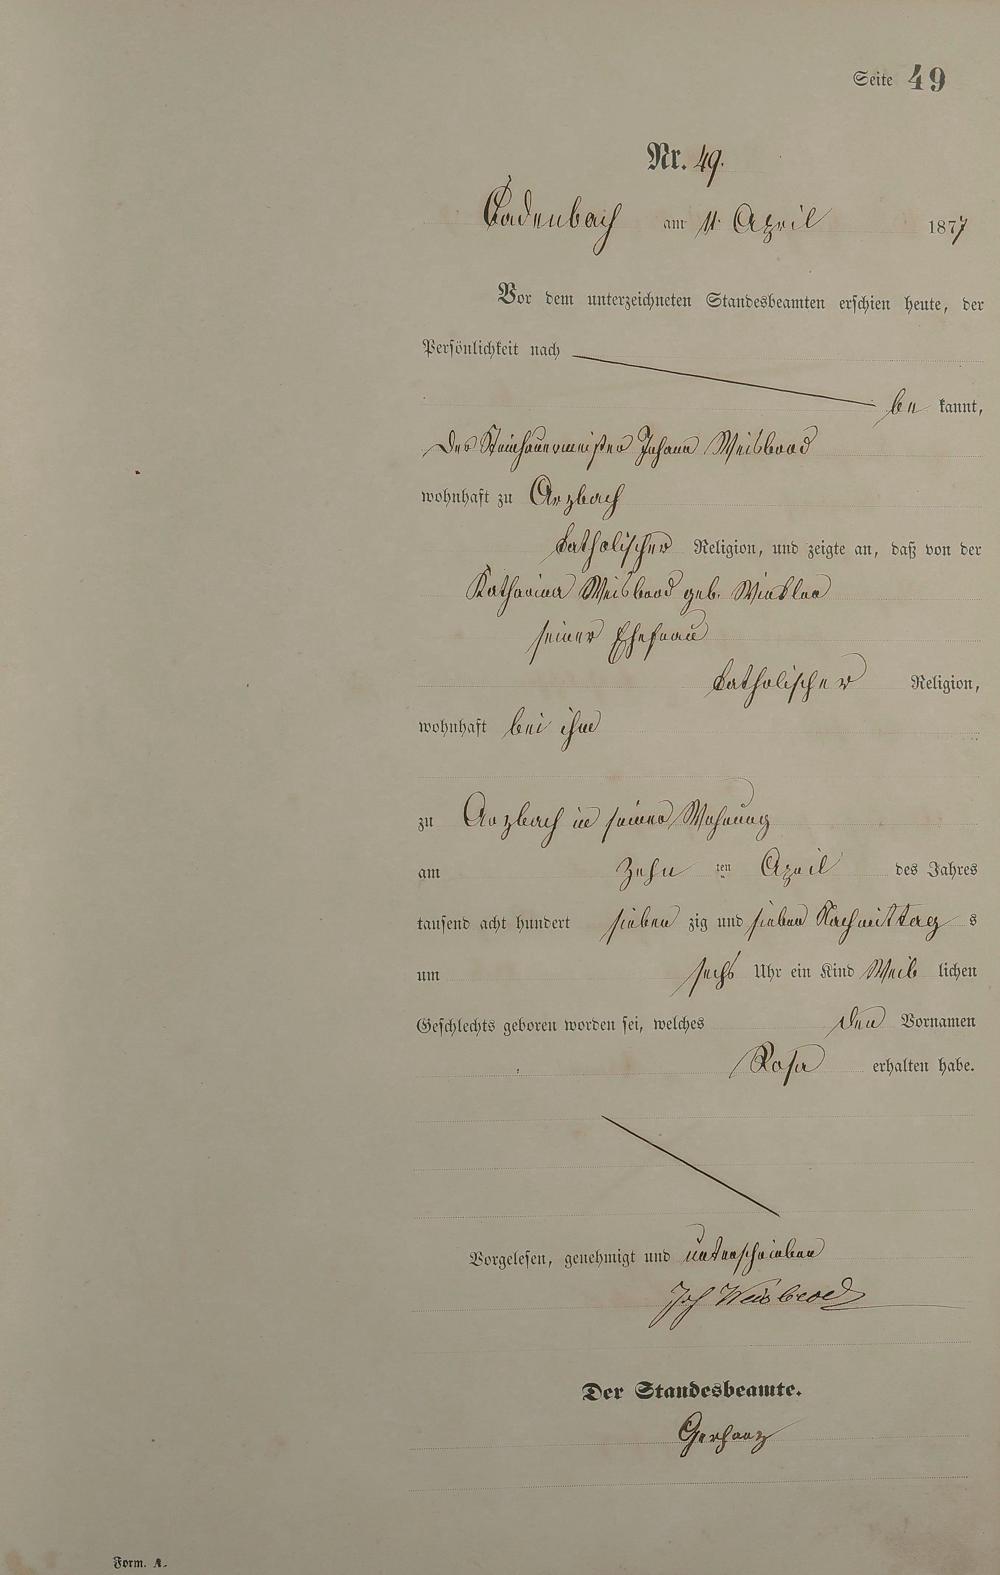 Seite 49
Nr. 49.
Cadenbach am 11. April 1877
Vor dem unterzeichneten Standesbeamten erschien heute, der
Persönlichkeit nach
be kannt,
der Steinhauermeister Johann Weisbrod
wohnhaft zu Arzbach
katholischer Religion, und zeigte an, daß von der
Katharina Weisbrod geb. Winkler
seiner Ehefrau
katholischer Religion,
wohnhaft bei ihm
zu Arzbach in seiner Wohnung
am zehn ten April des Jahres
tausend acht hundert sieben zig und sieben Nachmittag s
um sechs Uhr ein Kind Weib lichen
Geschlechts geboren worden sei, welches den Vornamen
Rosa erhalten habe.
Vorgelesen, genehmigt und unterschrieben
Joh Weisbrod
Der Standesbeamte.
Gerharz
Form. A.